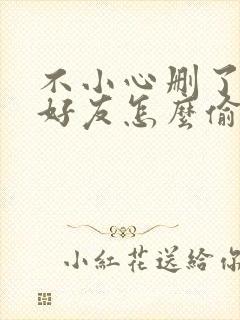 不小心删了
好友怎麼偷
小紅花送給你